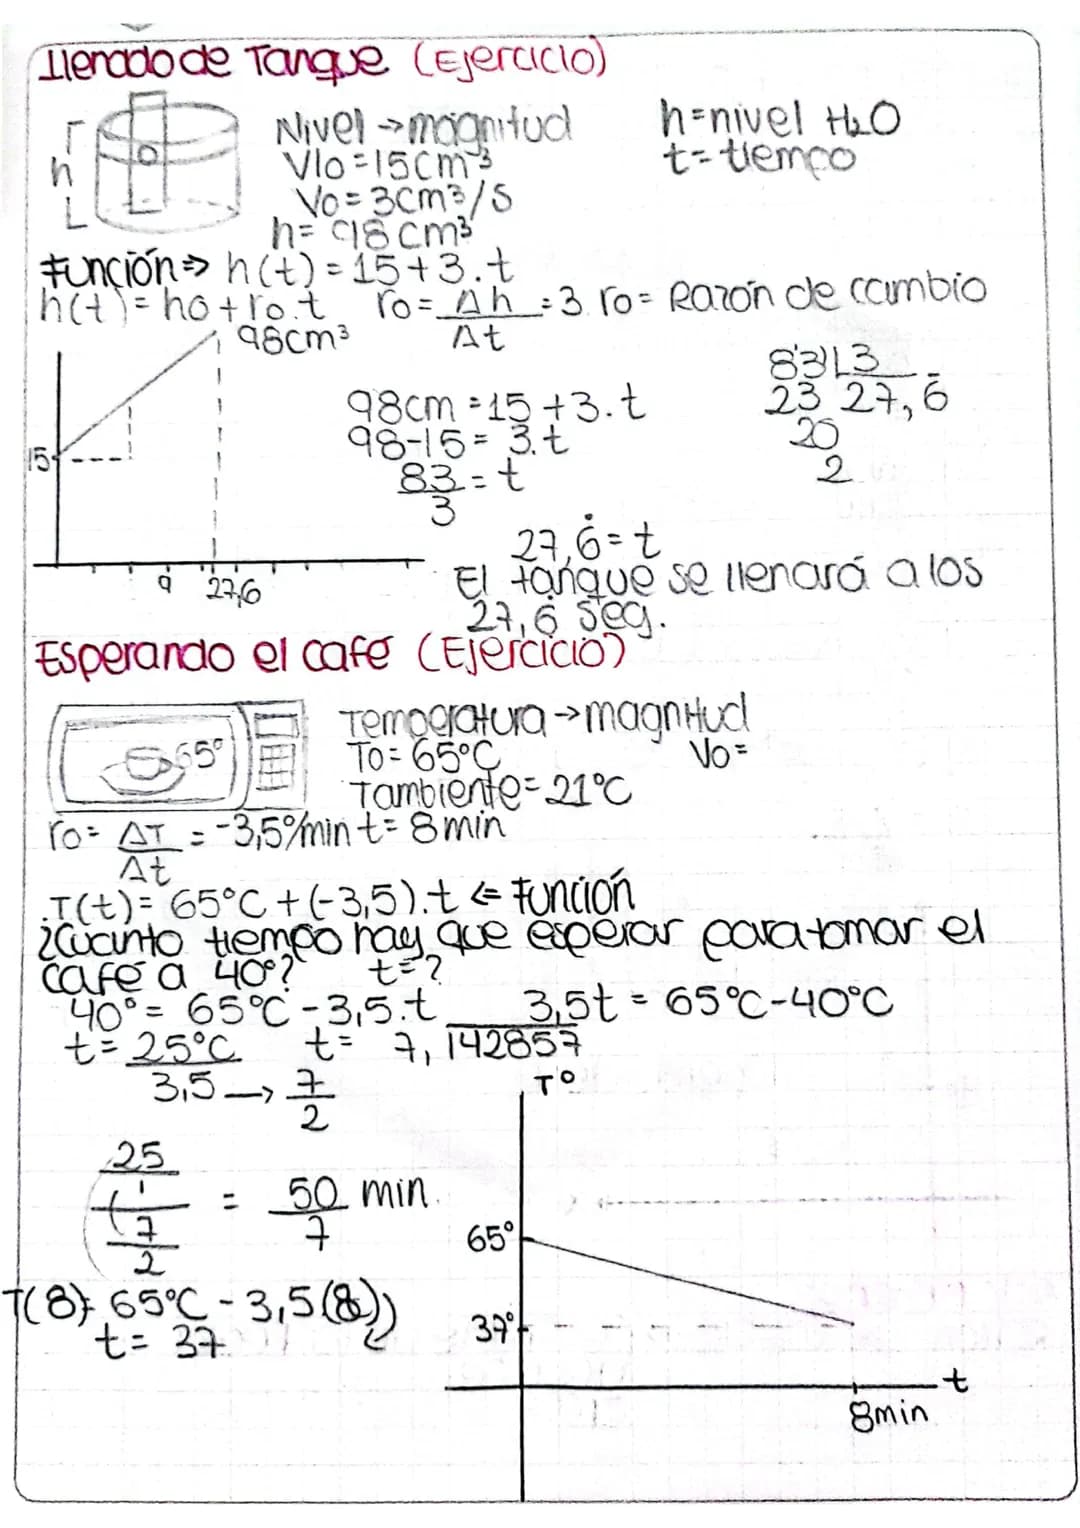 llenado de Tanque (Ejercicio)
h
Nivel → magnitud
h=nivel H₂O
VIo=15cm³
t=tiempo
Vo=3cm³/s
h= 98cm³
Función ⇒ h(t)=15+3.t
h(t)=ho+ro.t ro=Δh/Δt=3 ro=Razón de cambio
98cm³
15
9 27,6
98cm=15+3.t
98-15=3.t
83/3=t
83 3
23 27,6
20
2
27,6=t
El tanque se llenará a los
27,6 seg.
Esperando el café (Ejercicio)
65°
Temperatura → magnitud
To=65°C Vo=
Tambiente=21°C
ro=ΔT/Δt=-3,5°/min t=8min
T(t)=65°C+(-3,5).t ⇐ Función
¿Cuánto tiempo hay que esperar para tomar el
café a 40°? t=?
40°=65°C-3,5.t 3,5t=65°C-40°C
t=25°C/3,5 → 7/2 t=7,142857
25/(7/2) = 50/7 min.
T(8)=65°C-3,5(8)
t=37
T°
65°
37°
t
8min